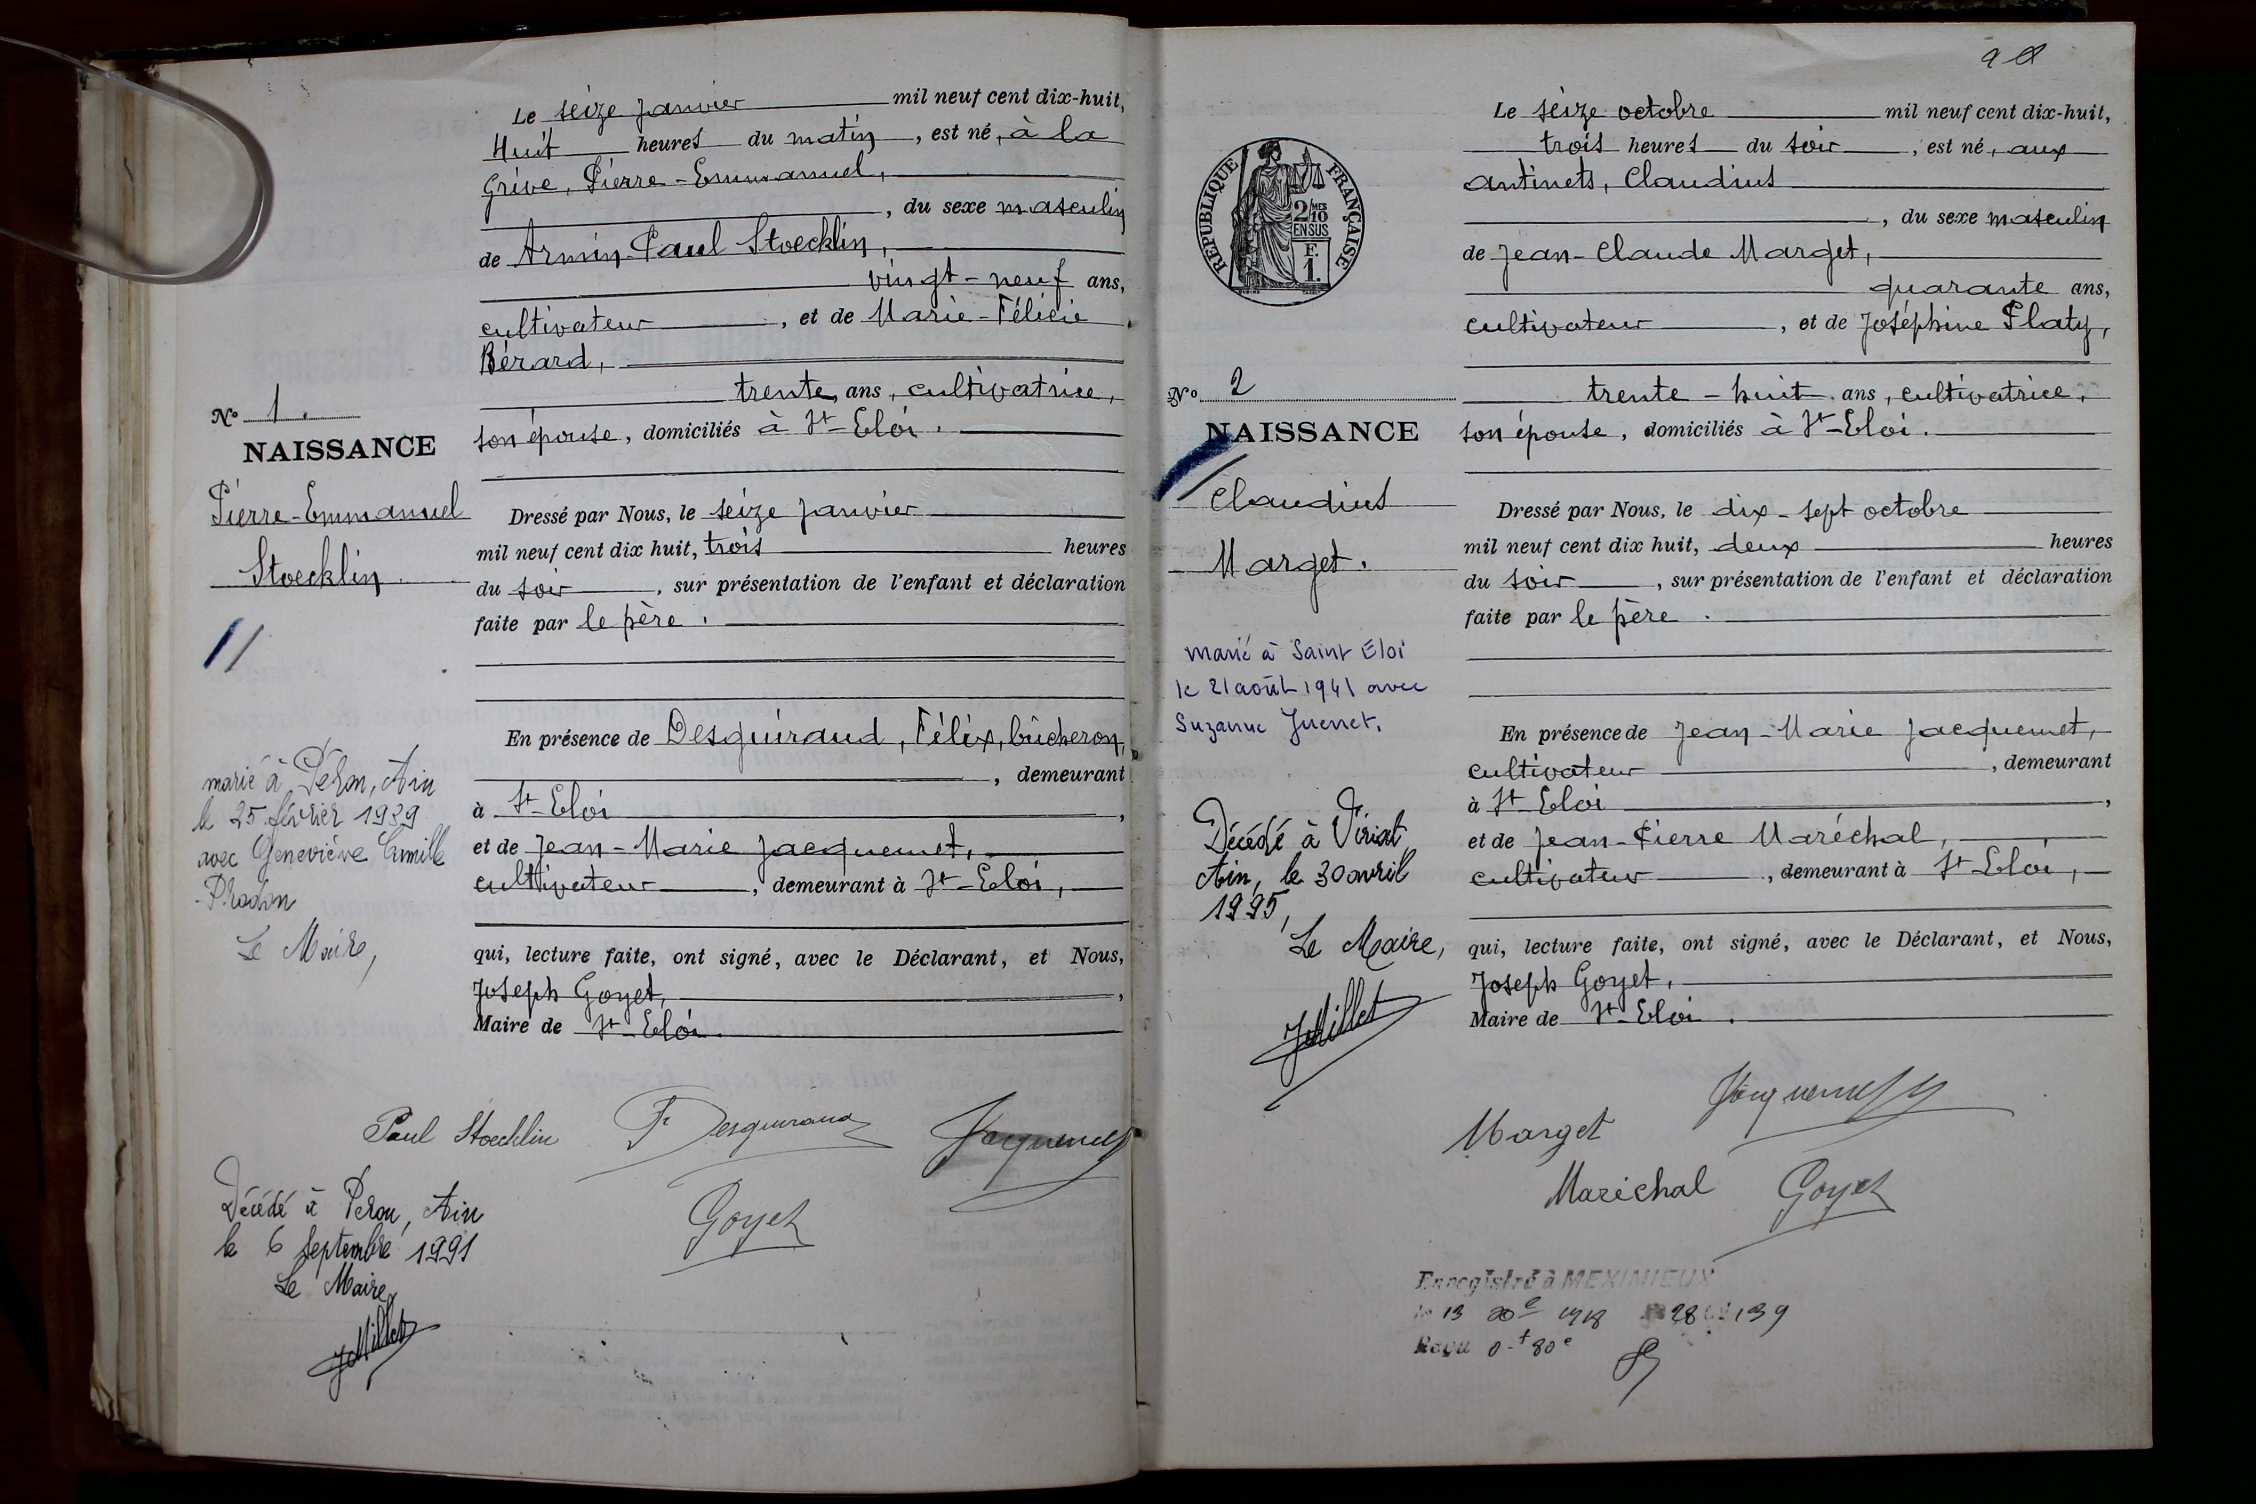 Le seize janvier mil neuf cent dix-huit,
Huit heures du matin, est né, à la
Grive, Pierre-Emmanuel,
, du sexe masculin
de Armin-Paul Stoecklin,
vingt-neuf ans,
cultivateur, et de Marie-Félicie
Bérard,
trente ans, cultivatrice,
son épouse, domiciliés à St-Eloi.
No 1.
NAISSANCE
Pierre-Emmanuel
Stoecklin
Dressé par Nous, le seize janvier
mil neuf cent dix huit, trois heures
du soir, sur présentation de l'enfant et déclaration
faite par le père.
En présence de Desguiraud, Félix, bûcheron,
, demeurant
à St-Eloi,
et de Jean-Marie Jacquemet,
cultivateur, demeurant à St-Eloi,
qui, lecture faite, ont signé, avec le Déclarant, et Nous,
Joseph Goyet,
Maire de St-Eloi.
marié à Péron, Ain
le 25 février 1939
avec Geneviève Camille
Le Maire,
Paul Stoecklin F. Desguiraud Jacquemet
Goyet
Décédé à Peron, Ain
le 6 septembre 1991
Le Maire,
JMillet
Le seize octobre mil neuf cent dix-huit,
trois heures du soir, est né, aux
antinets, Claudius
, du sexe masculin
de Jean-Claude Marget,
quarante ans,
cultivateur, et de Joséphine Platy,
trente-huit ans, cultivatrice,
son épouse, domiciliés à St-Eloi.
REPUBLIQUE FRANÇAISE
2/10 MES
EN SUS
F.
1.
No 2
NAISSANCE
Claudius
Marget.
Dressé par Nous, le dix-sept octobre
mil neuf cent dix huit, deux heures
du soir, sur présentation de l'enfant et déclaration
faite par le père.
En présence de Jean-Marie Jacquemet,
cultivateur, demeurant
à St Eloi,
et de Jean-Pierre Maréchal,
cultivateur, demeurant à St Eloi,
qui, lecture faite, ont signé, avec le Déclarant, et Nous,
Joseph Goyet,
Maire de St-Eloi.
marié à Saint Eloi
le 21 août 1941 avec
Suzanne Juenet.
Décédé à Viriat,
Ain, le 30 avril
1995,
Le Maire,
JMillet
Jacquemet
Marget
Maréchal Goyet
Enregistré à MEXIMIEUX
Reçu